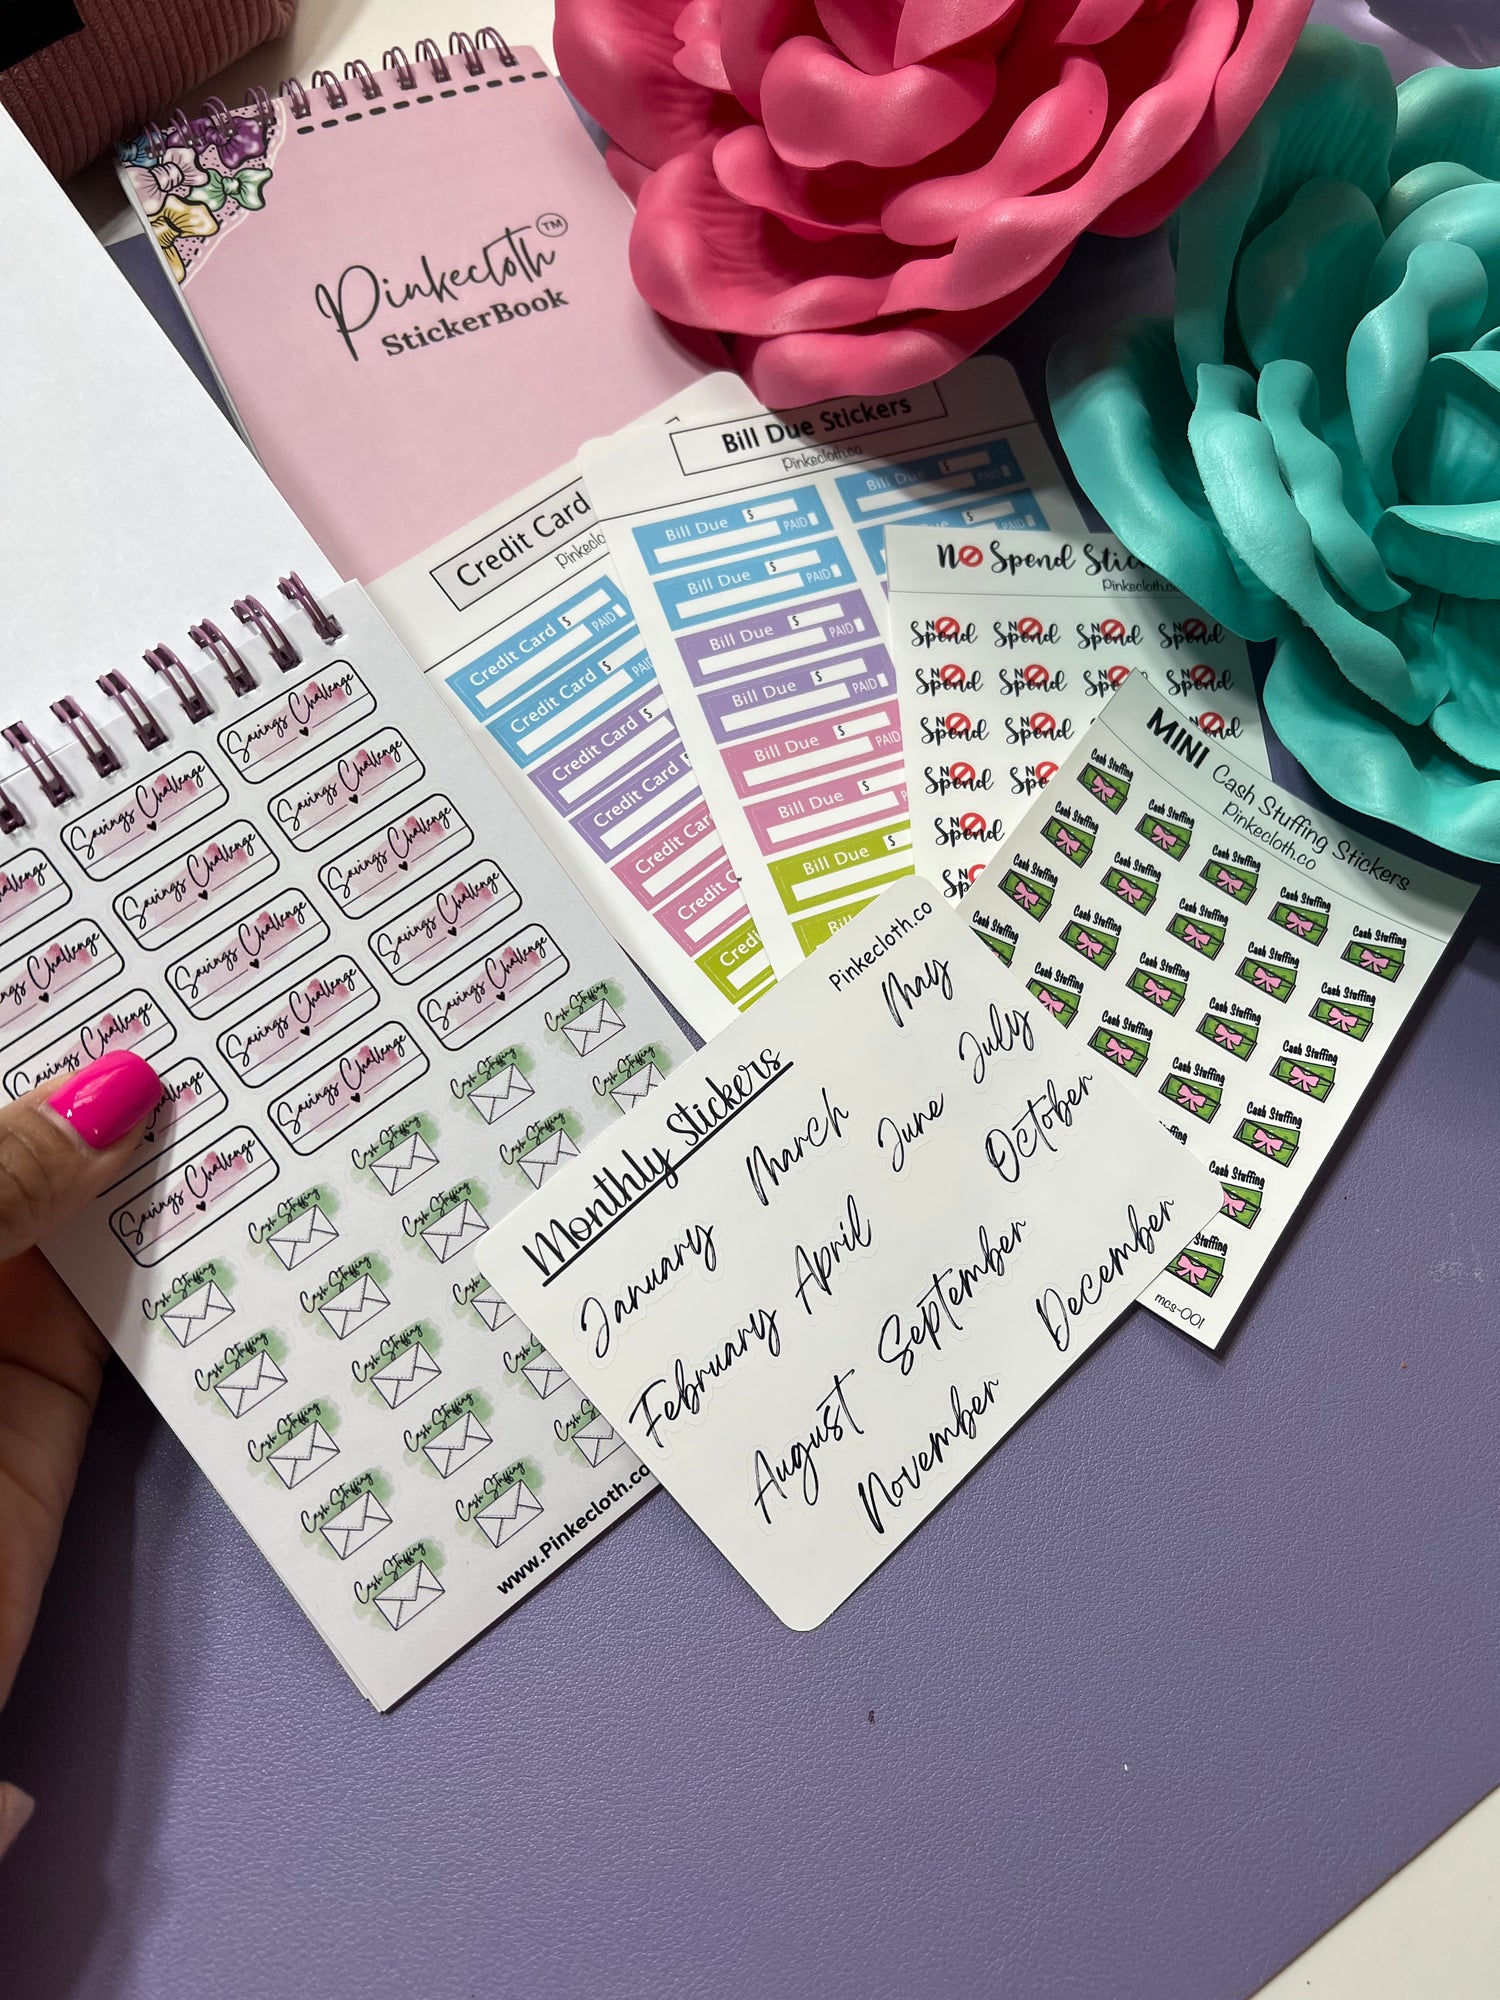 Pinkecloth™
StickerBook
Credit Card
Bill Due Stickers
Pinkecloth.co
Credit Card $ PAID
Credit Card $
Credit Card $
Credit Card
Bill Due $ PAID
Bill Due $ PAID
Bill Due $ PAID
Bill Due $ PAID
Bill Due $ PAID
Bill Due $
Bill Due $
Bill Due
NO Spend
Pinkecloth.co
NO Spend NO Spend NO Spend NO Spend
NO Spend NO Spend NO Spend
NO Spend NO Spend
NO Spend NO Spend
NO Spend
MINI Cash Stuffing Stickers
Pinkecloth.co
Cash Stuffing
Cash Stuffing Cash Stuffing
Cash Stuffing Cash Stuffing Cash Stuffing
Cash Stuffing Cash Stuffing Cash Stuffing
Cash Stuffing Cash Stuffing Cash Stuffing
Cash Stuffing Cash Stuffing Cash Stuffing
Cash Stuffing Cash Stuffing
Cash Stuffing
Stuffing
mcs-001
Savings Challenge Savings Challenge
Savings Challenge Savings Challenge
Savings Challenge Savings Challenge
Savings Challenge Savings Challenge
Savings Challenge Savings Challenge
Savings Challenge
Savings Challenge
Cash Stuffing Cash Stuffing Cash Stuffing
Cash Stuffing Cash Stuffing Cash Stuffing
Cash Stuffing Cash Stuffing Cash Stuffing
Cash Stuffing Cash Stuffing
Cash Stuffing Cash Stuffing
Cash Stuffing Cash Stuffing
Cash Stuffing
www.Pinkecloth.co
Pinkecloth.co
Monthly Stickers
January March May
February April June July
August September October
November December